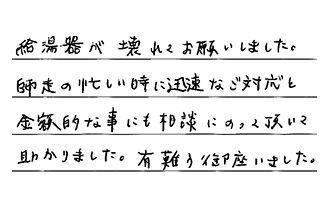 給湯器が壊れてお願いしました。
師走の忙しい時に迅速なご対応と
金額的な事にも相談にのって頂いて
助かりました。有難う御座いました。